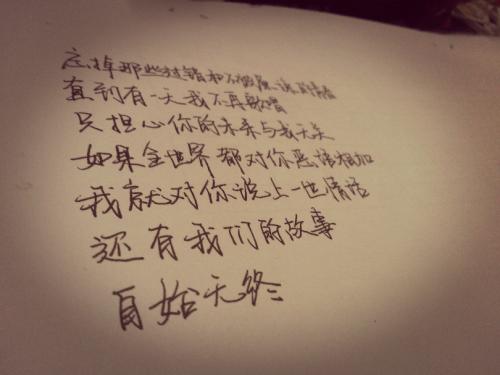 忘掉那些对错和不敢说的情话
直到有一天我不再歌唱
只担心你的未来与我无关
如果全世界都对你恶语相加
我就对你说上一世情话
还有我们的故事
自始无终